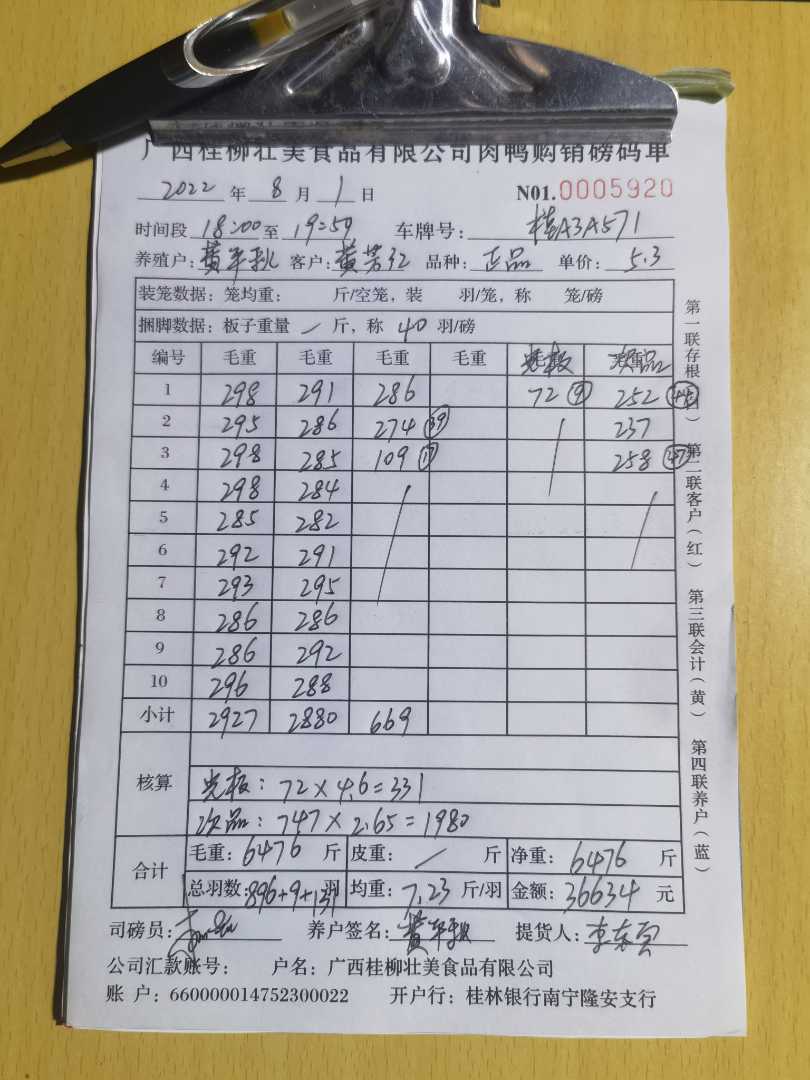 广西桂柳壮美食品有限公司肉鸭购销磅码单
2022 年 8 月 1 日 N01.0005920
时间段 18:00 至 19:59 车牌号: 桂A3A571
养殖户: 黄平秋 客户: 黄芳红 品种: 正品 单价: 5.3
装笼数据: 笼均重: 斤/空笼, 装 羽/笼, 称 笼/磅
捆脚数据: 板子重量 / 斤, 称 40 羽/磅
编号 毛重 毛重 毛重 毛重 光板 次品
1 298 291 286 72 ⑨ 252
2 295 286 274 39 237
3 298 285 109 258 47
4 298 284
5 285 282
6 292 291
7 293 295
8 286 286
9 286 292
10 296 288
小计 2927 2880 669
核算
光板: 72×4.6=331
次品: 747×2.65=1980
合计 毛重: 6476 斤 皮重: / 斤 净重: 6476 斤
总羽数: 896+9+131 羽 均重: 7.23 斤/羽 金额: 36634 元
司磅员: 养户签名: 黄平秋 提货人:
公司汇款账号: 户名: 广西桂柳壮美食品有限公司
账 户: 660000014752300022 开户行: 桂林银行南宁隆安支行
第一联存根( ) 第二联客户(红) 第三联会计(黄) 第四联养户(蓝)